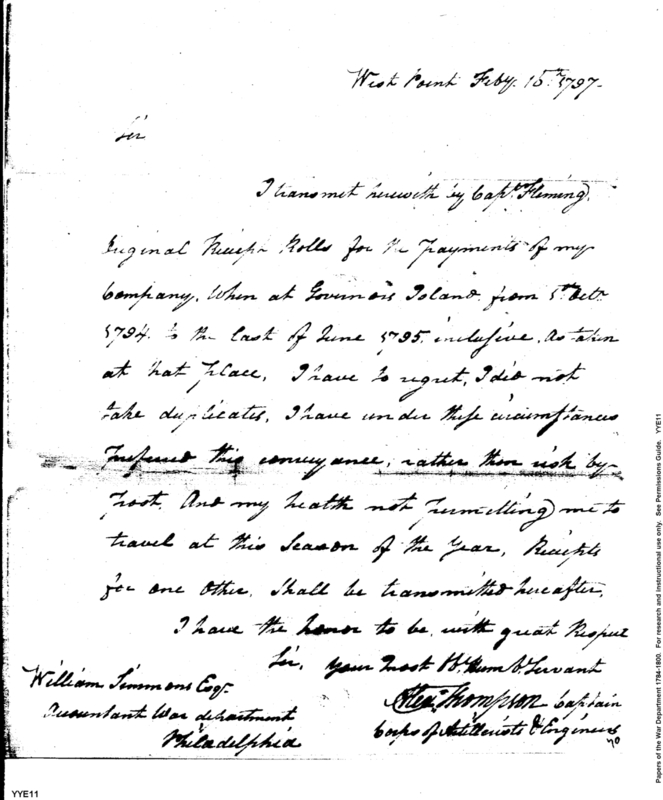 West Point Feby. 15th 1797.
Sir
I transmet herewith by Capt. Fleming,
Original Receipt Rolls for the payments of my
Company, When at Governors Island from 1st Octr.
1794. to the last of June 1795. inclusive. As taken
at that place, I have to regret, I did not
take duplicates, I have under these circumstances
prefered this conveyance, rather than risk by
post, And my health not permitting me to
travel at this Season of the Year, Receipts
for one other, Shall be transmitted hereafter,
I have the honor to be with great Respect
Sir, your most Ob. Hum. Servant
Alexr. Thompson Captain
Corps of Artillerists & Engineers
William Simmons Esqr.
Accountant War department
Philadelphia
YYE11
Papers of the War Department 1784-1800. For research and instructional use only. See Permissions Guide. YYE11